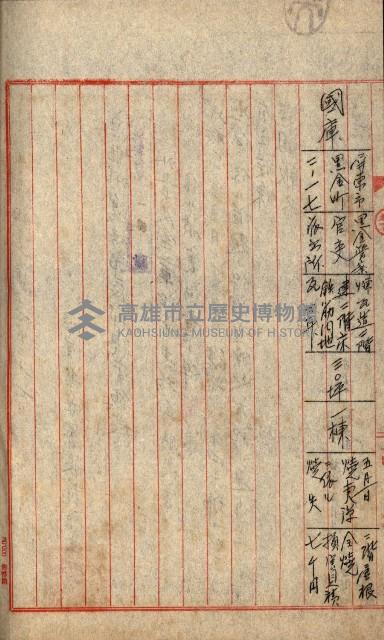 國庫
屏東市
黒金町
二ー一七
黒金警察
官吏
派出所
煉瓦造二階
建二階床
鉄筋
瓦
三〇坪
一棟
五月 日
燒夷弾
燒失
二階屋根
全燒
損害見積
七千円
高雄市立歷史博物館
KAOHSIUNG MUSEUM OF HISTORY